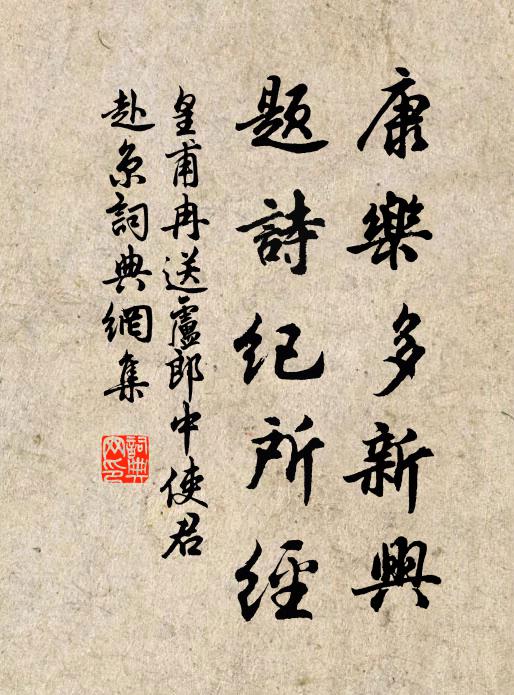 康樂多新興
題詩紀所經
皇甫冉送盧郎中使君
赴京詞典網集
詞典網印